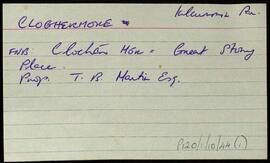 CLOGHERMORE
FNB: Clochán Mór = Great Stony
Place.
Prop. T. B. Martin Esq.
P120/1/10/44 (1)